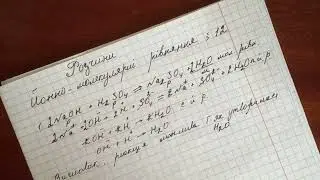 Розчини
Йонно-молекулярні рівняння
2NaOH + H₂SO₄ ⇒ Na₂SO₄ + 2H₂O мол. рівн.
2Na⁺ + 2OH⁻ + 2H⁺ + SO₄²⁻ = 2Na⁺ + SO₄²⁻ + 2H₂O й р
2OH⁻ + 2H⁺ → 2H₂O с й р
OH⁻ + H⁺ → H₂O
Висновок: реакція можлива як утворилась
H₂O